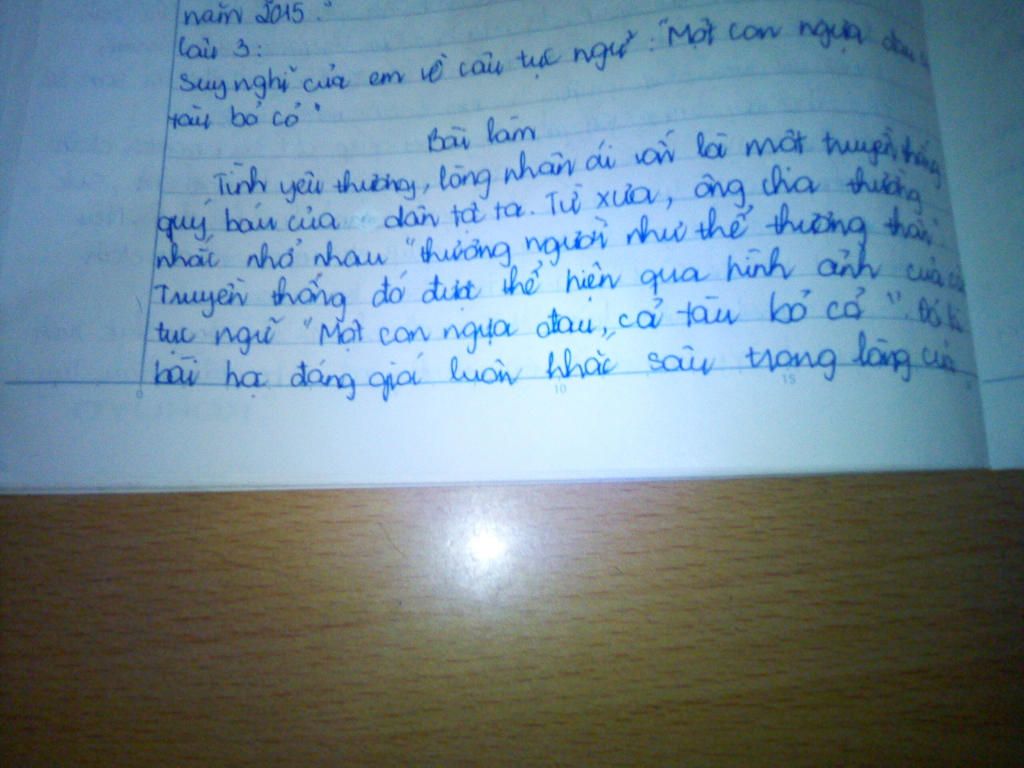 năm 2015."
Câu 3:
Suy nghĩ của em về câu tục ngữ: "Một con ngựa đau cả
tàu bỏ cỏ"
Bài làm
Tình yêu thương, lòng nhân ái vốn là một truyền thống
quý báu của dân tộc ta. Từ xưa, ông cha thường
nhắc nhở nhau "thương người như thể thương thân".
Truyền thống đó được thể hiện qua hình ảnh của câu
tục ngữ "Một con ngựa đau, cả tàu bỏ cỏ". Đó là
bài học đáng giá luôn khắc sâu trong lòng của